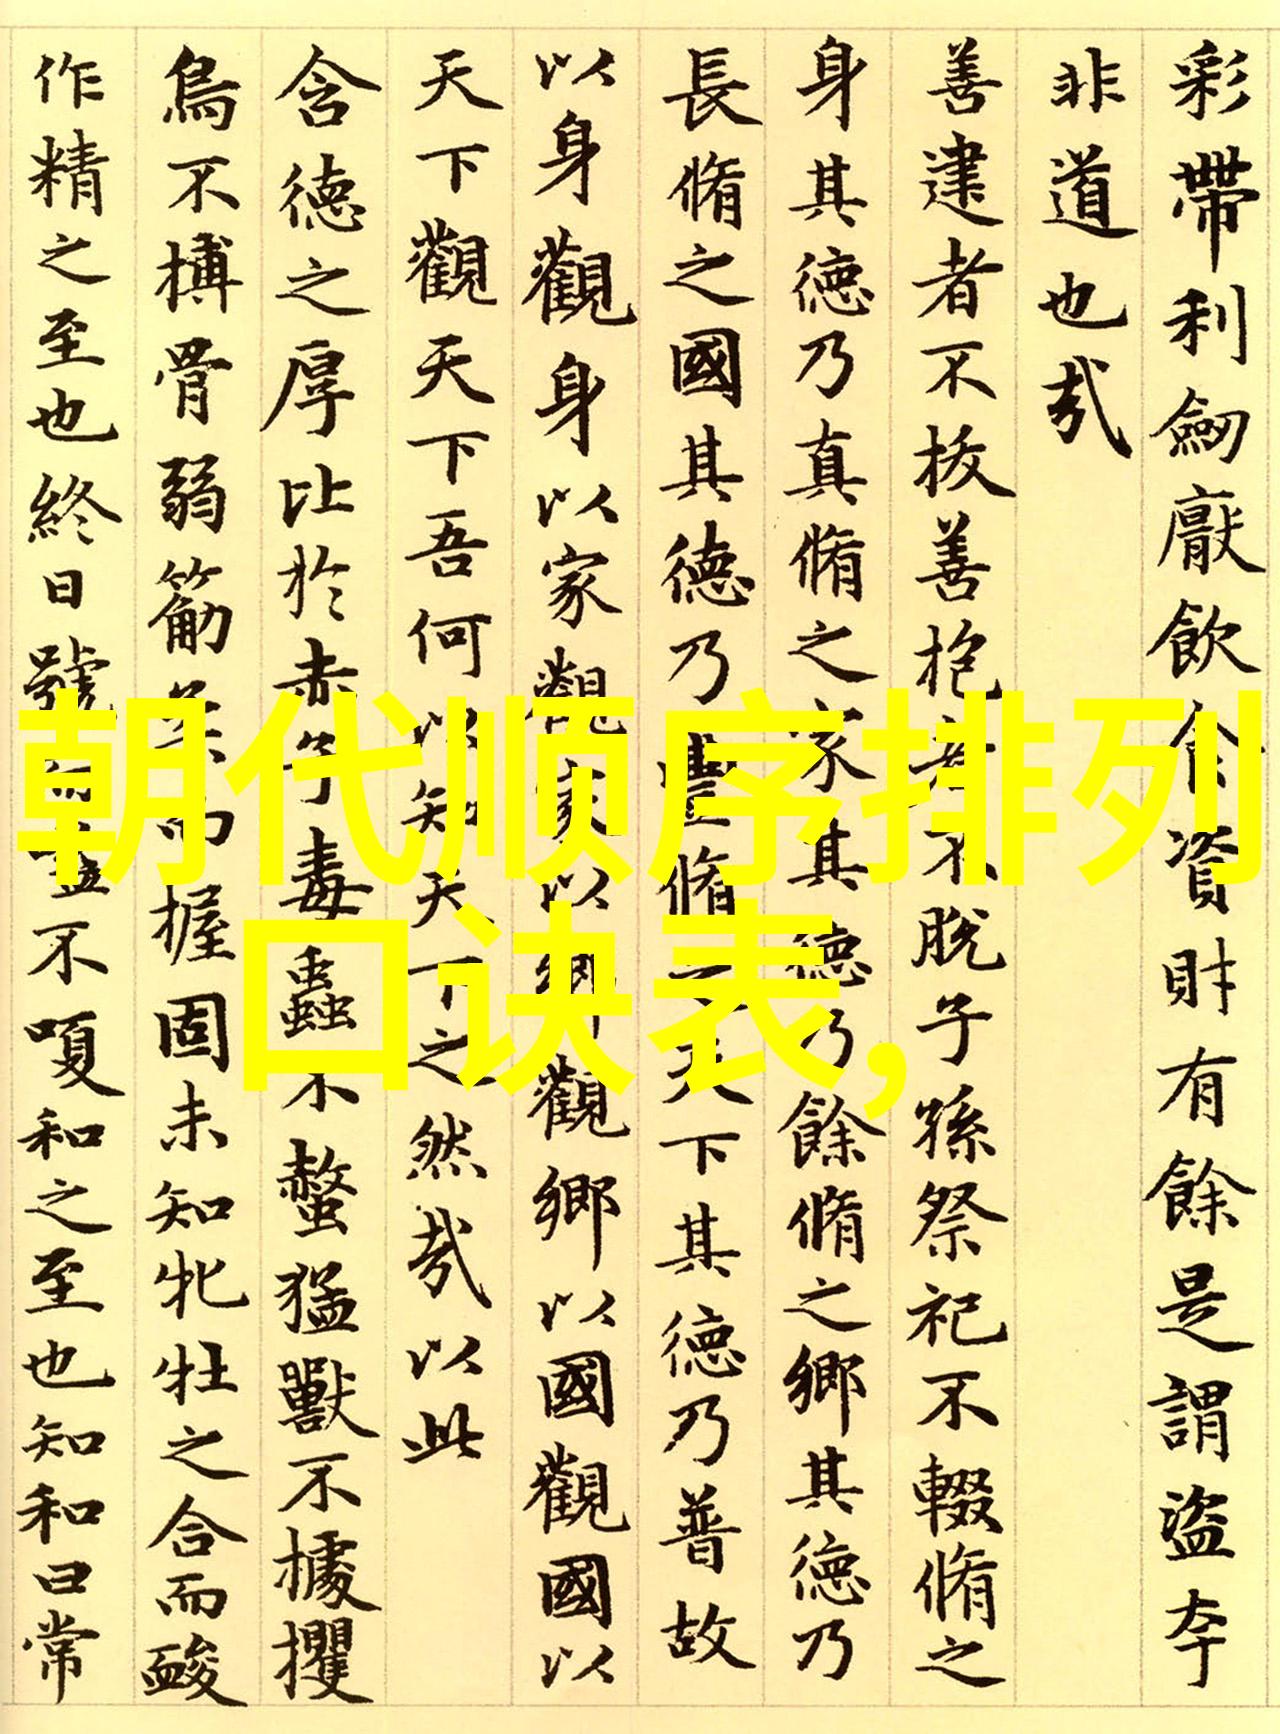 彩帶利劒厭飲食資財有餘是謂盜夸
非道也哉
善建者不拔善抱者不脫子孫祭祀不輟脩之
身其德乃真脩之家其德乃餘脩之鄉其德乃
長脩之國其德乃豐脩之天下其德乃普故
以身觀身以家觀家以鄉觀鄉以國觀國以
天下觀天下吾何以知天下之然哉以此
含德之厚比於赤子毒蟲不螫猛獸不據攫
鳥不搏骨弱筋柔而握固未知牝牡之合而䘒
作精之至也終日號而益不嗄和之至也知和曰常
朝代顺序排列
口诀表,